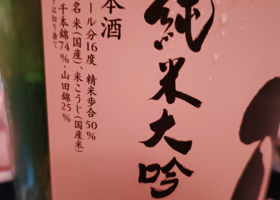 純米大吟
本酒
ール分16度 精米歩合50%
名 米(国産)、米こうじ(国産米)
千本錦74%・山田錦25%
は切り捨て